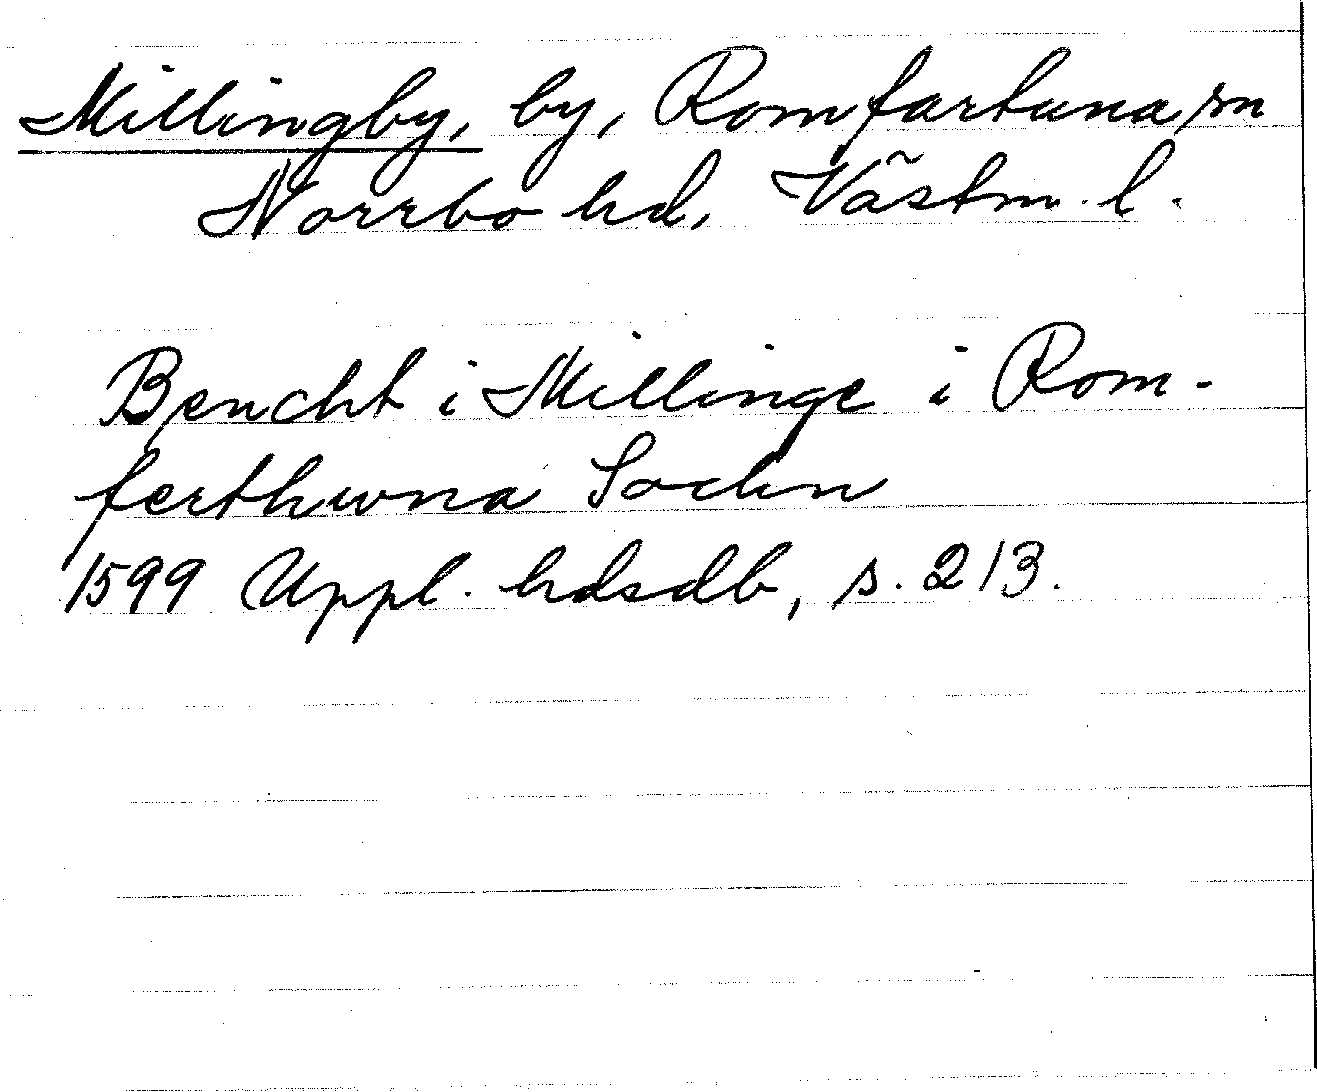 Millingby, by, Romfartuna sn
Norrbo hd, Västm. l.
Bencht i Millinge i Rom-
ferthwna Sochn
1599 Uppl. hdsdb, s. 213.